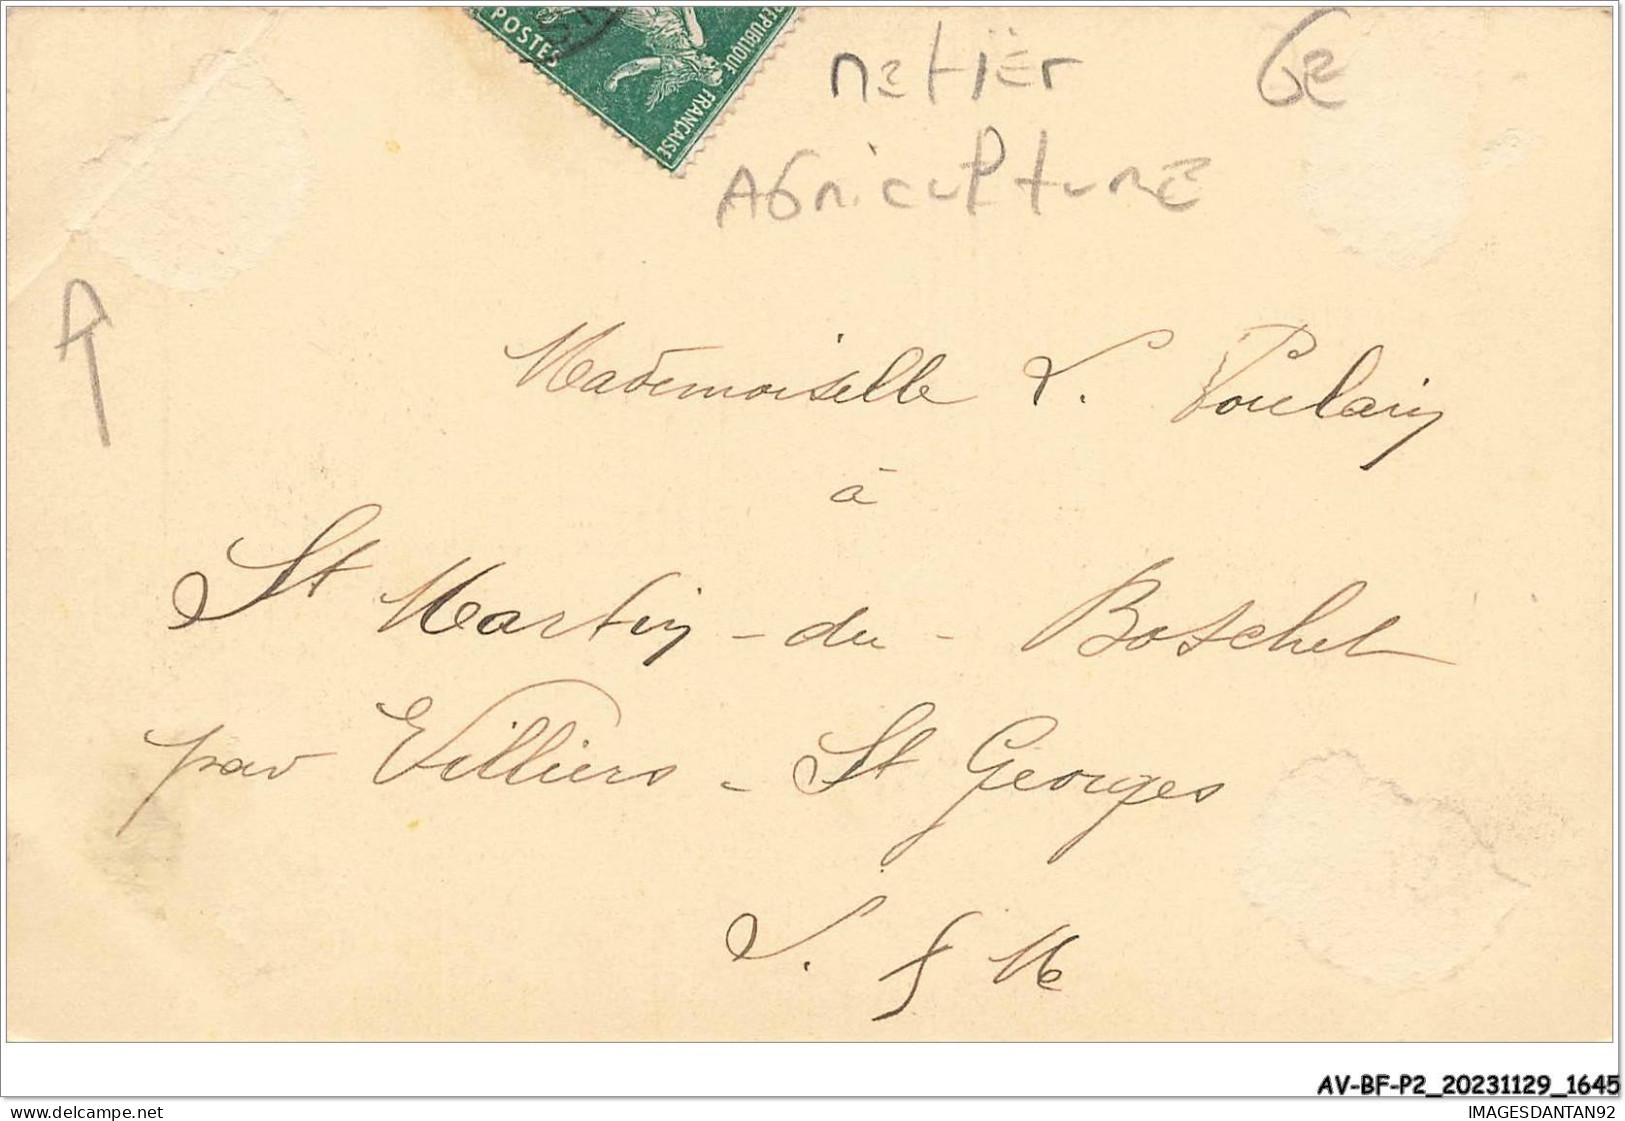 POSTES
REPUBLIQUE
FRANÇAISE
Metier 6E
Agriculture
Mademoiselle L. Poulain
à
St Martin-du-Boschet
par Villiers-St Georges
S. & M
AV-BF-P2_20231129_1645
www.delcampe.net
IMAGESDANTAN92